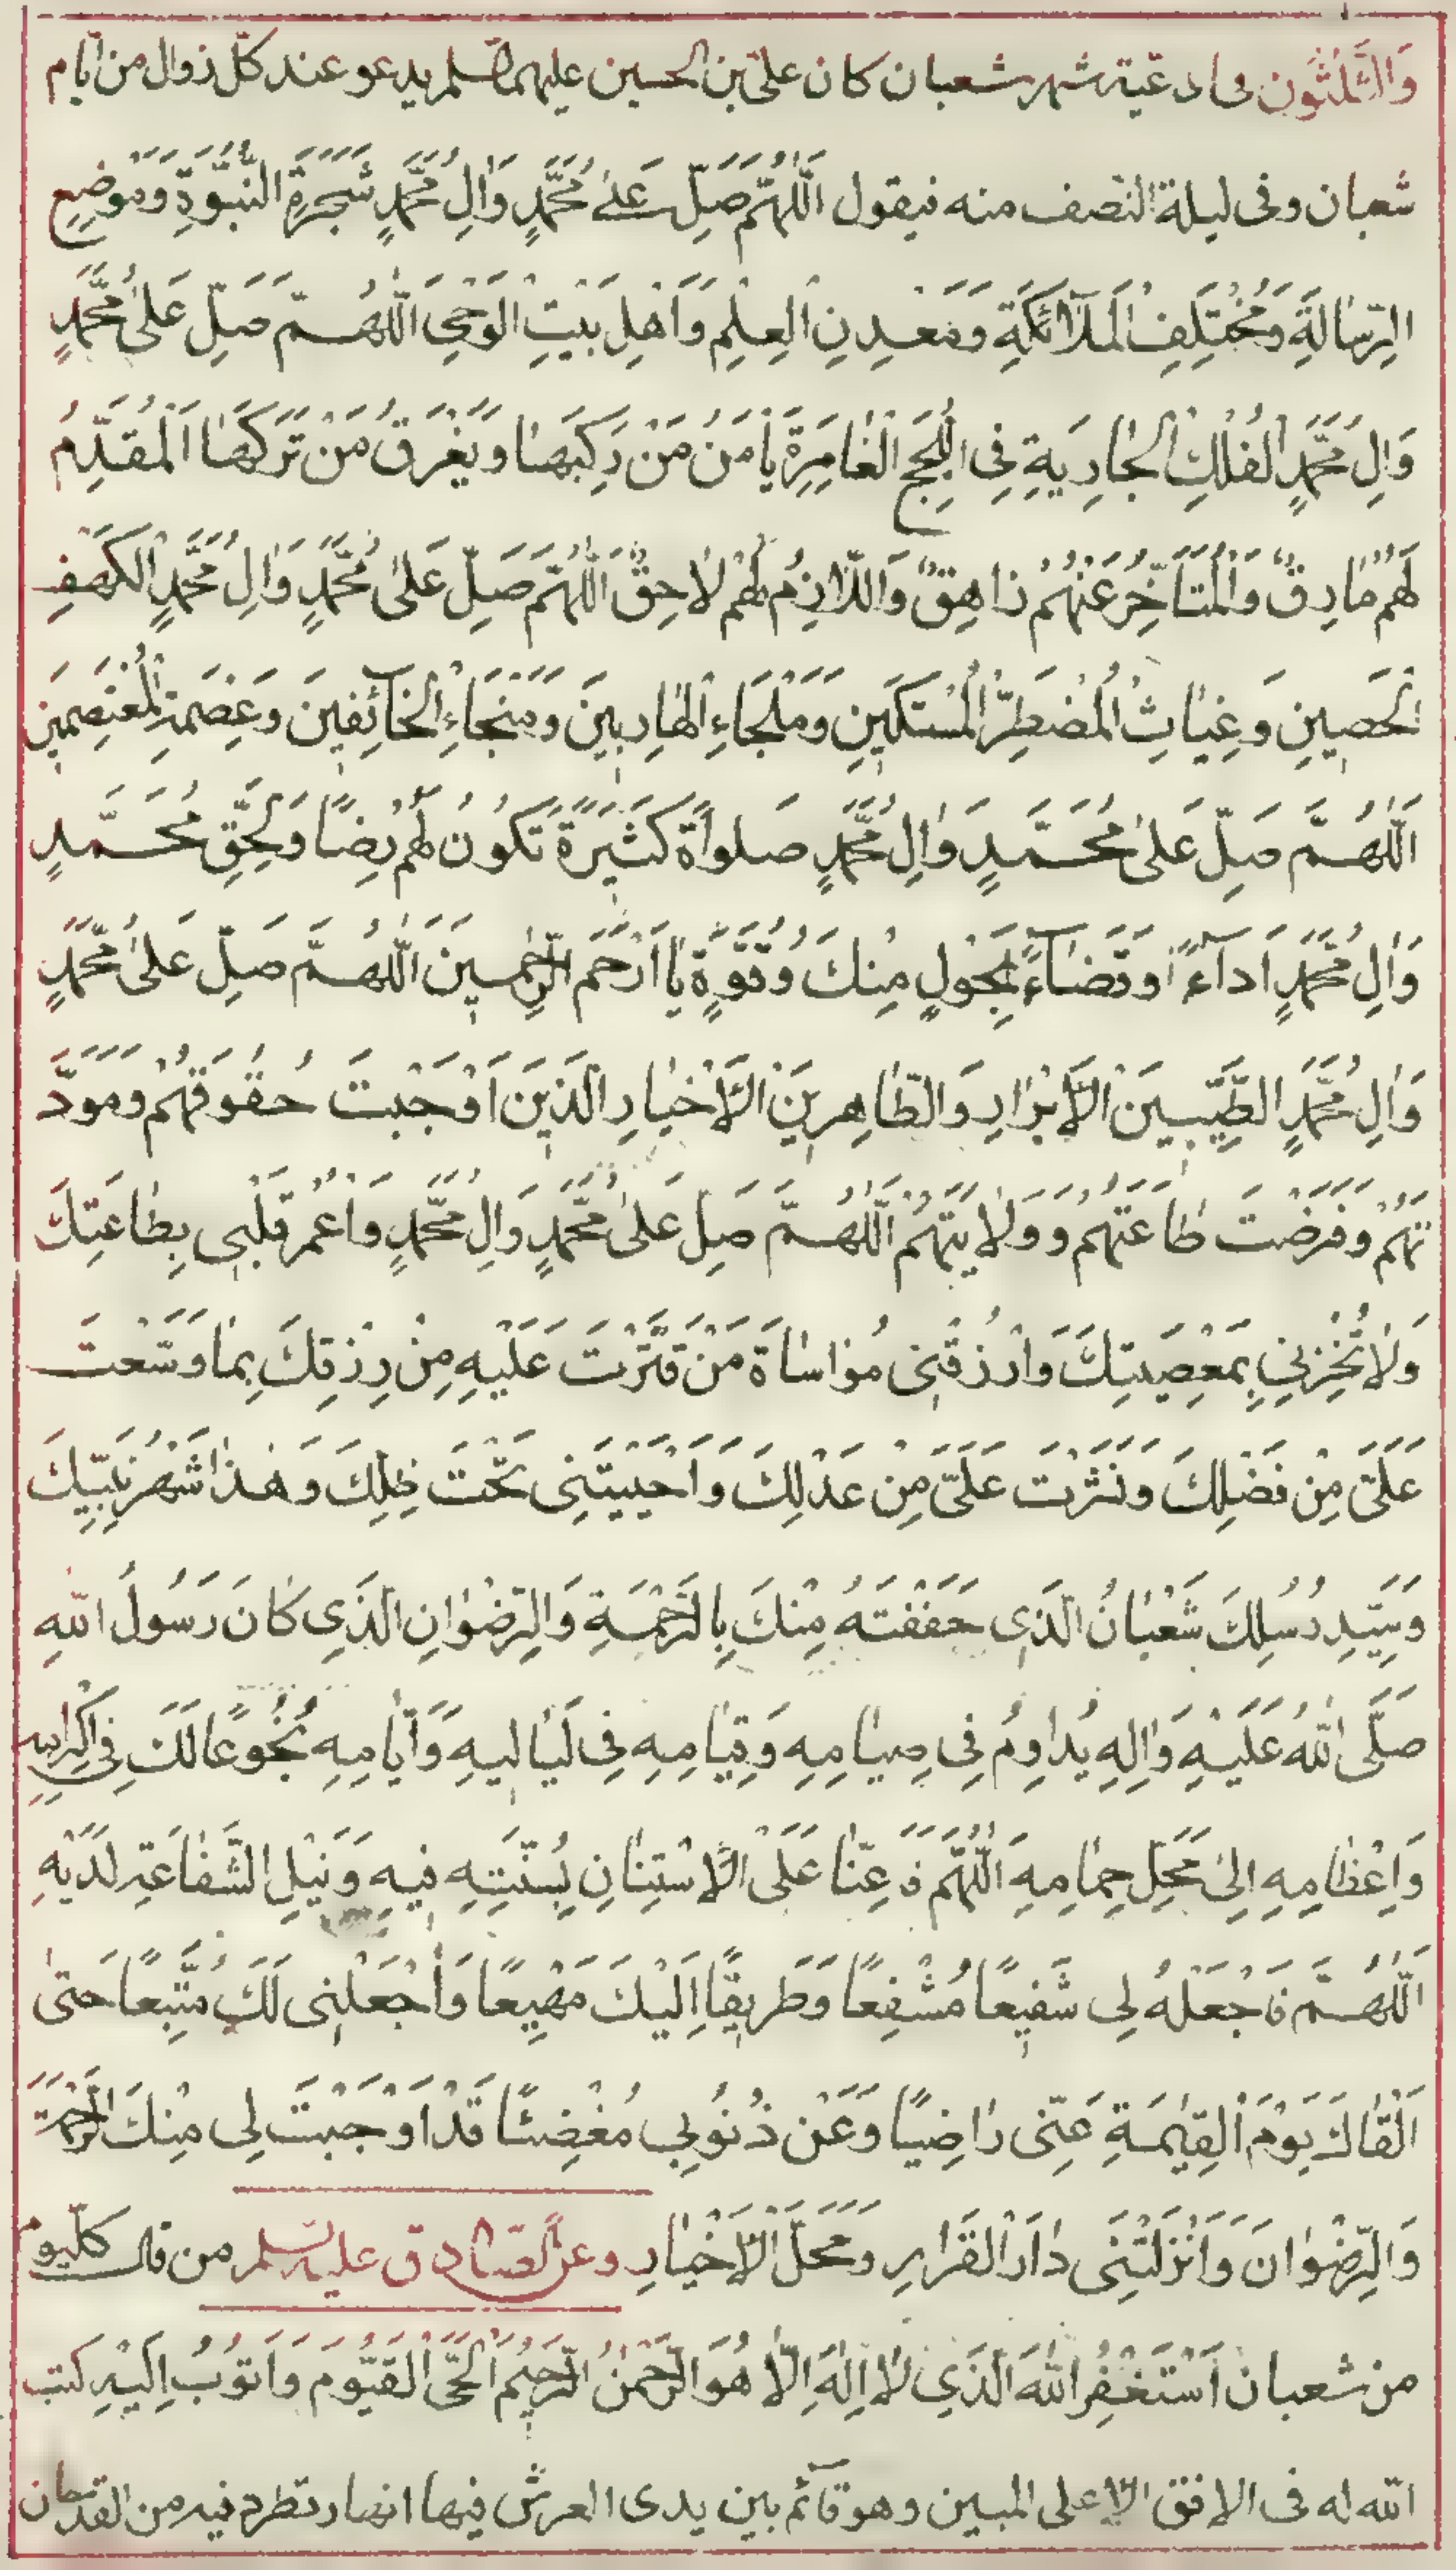 وَالثَّلٰثُون فى ادعية شهر شعبان كان علىّ بن الحسين عليهما السلم يدعو عند كلّ زوال من ايّام
شعبان وفى ليلة النّصف منه فيقول اَللّٰهُمَّ صَلِّ عَلىٰ مُحَمَّدٍ وَاٰلِ مُحَمَّدٍ شَجَرَةِ النُّبُوَّةِ وَمَوْضِعِ
الرِّسٰالَةِ وَمُخْتَلَفِ الْمَلٰٓائِكَةِ وَمَعْدِنِ الْعِلْمِ وَاَهْلِ بَيْتِ الْوَحْىِ اَللّٰهُمَّ صَلِّ عَلىٰ مُحَمَّدٍ
وَاٰلِ مُحَمَّدٍ الْفُلْكِ الْجٰارِيَةِ فِى اللُّجَجِ الْغٰامِرَةِ يَاْمَنُ مَنْ رَكِبَهٰا وَيَغْرَقُ مَنْ تَرَكَهٰا اَلْمُقَدِّمُ
لَهُمْ مٰارِقٌ وَالْمُتَاَخِّرُ عَنْهُمْ زٰاهِقٌ وَاللّٰازِمُ لَهُمْ لٰاحِقٌ اَللّٰهُمَّ صَلِّ عَلىٰ مُحَمَّدٍ وَاٰلِ مُحَمَّدٍ الْكَهْفِ
الْحَصِينِ وَغِيٰاثِ الْمُضْطَرِّ الْمُسْتَكِينِ وَمَلْجَاءِ الْهٰارِبينَ وَمَنْجَاءِ الْخٰآئِفينَ وَعِصْمَةِ الْمُعْتَصِمينَ
اَللّٰهُمَّ صَلِّ عَلىٰ مُحَمَّدٍ وَاٰلِ مُحَمَّدٍ صَلوٰاةً كَثيرَةً تَكُونُ لَهُمْ رِضًا وَلِحَقِّ مُحَمَّدٍ
وَاٰلِ مُحَمَّدٍ اَدآءً اوقَضٰآءً بِحَوْلٍ مِنْكَ وَقُوَّةٍ يٰا اَرْحَمَ الرّٰحِمينَ اَللّٰهُمَّ صَلِّ عَلىٰ مُحَمَّدٍ
وَاٰلِ مُحَمَّدٍ الطَّيِّبينَ الْاَبْرٰارِ وَالطّٰاهِرينَ الْاَخْيٰارِ الَّذينَ اَوْجَبْتَ حُقُوقَهُمْ وَمَوَدَّ
تَهُمْ وَفَرَضْتَ طٰاعَتَهُمْ وَوَلٰايَتَهُمْ اَللّٰهُمَّ صَلِّ عَلىٰ مُحَمَّدٍ وَاٰلِ مُحَمَّدٍ وَاعْمُرْ قَلْبى بِطٰاعَتِكَ
وَلٰا تُخْزِنِى بِمَعْصِيَتِكَ وَارْزُقْنِى مُوٰاسٰاةَ مَنْ قَتَّرْتَ عَلَيْهِ مِنْ رِزْقِكَ بِمٰا وَسَّعْتَ
عَلَىَّ مِنْ فَضْلِكَ وَنَشَرْتَ عَلَىَّ مِنْ عَدْلِكَ وَاَحْيَيْتَنِى تَحْتَ ظِلِّكَ وَهٰذٰا شَهْرُ نَبِيِّكَ
وَسَيِّدِ رُسُلِكَ شَعْبٰانُ الَّذى حَفَفْتَهُ مِنْكَ بِالرَّحْمَةِ وَالرِّضْوٰانِ الَّذِى كٰانَ رَسُولُ اللّٰهِ
صَلَّى اللّٰهُ عَلَيْهِ وَاٰلِهِ يُدٰاوِمُ فِى صِيٰامِهِ وَقِيٰامِهِ فِى لَيٰاليهِ وَاَيّٰامِهِ بُخُوعًا لَكَ فِى اِكْرٰامِهِ
وَاِعْظٰامِهِ اِلىٰ مَحَلِّ حِمٰامِهِ اَللّٰهُمَّ فَاَعِنّٰا عَلَى الْاِسْتِنٰانِ بِسُنَّتِهِ فيهِ وَنَيْلِ الشَّفٰاعَةِ لَدَيْهِ
اَللّٰهُمَّ فَاجْعَلْهُ لِى شَفيعًا مُشَفَّعًا وَطَريقًا اِلَيْكَ مَهْيَعًا وَاجْعَلْنِى لَكَ مُتَّبِعًا حَتىّٰ
اَلْقٰاكَ يَوْمَ الْقِيٰمَةِ عَنّى رٰاضِيًا وَعَنْ ذُنُوبِى مُغْضِيًا قَدْ اَوْجَبْتَ لِى مِنْكَ الرَّحْمَةَ
وَالرِّضْوٰانَ وَاَنْزَلْتَنِى دٰارَ الْقَرٰارِ وَمَحَلَّ الْاَخْيٰارِ وعن الصّادق عليه السلم من قال كلّ يوم
من شعبان اَسْتَغْفِرُ اللّٰهَ الَّذِى لٰا اِلٰهَ اِلّٰا هُوَ الرَّحْمٰنُ الرَّحيمُ الْحَىُّ الْقَيُّومُ وَاَتُوبُ اِلَيْهِ كتب
اللّٰه له فى الافق الاعلى المبين وهو قآئم بين يدى العرش فيها انهار تطرد فيه من القدحان